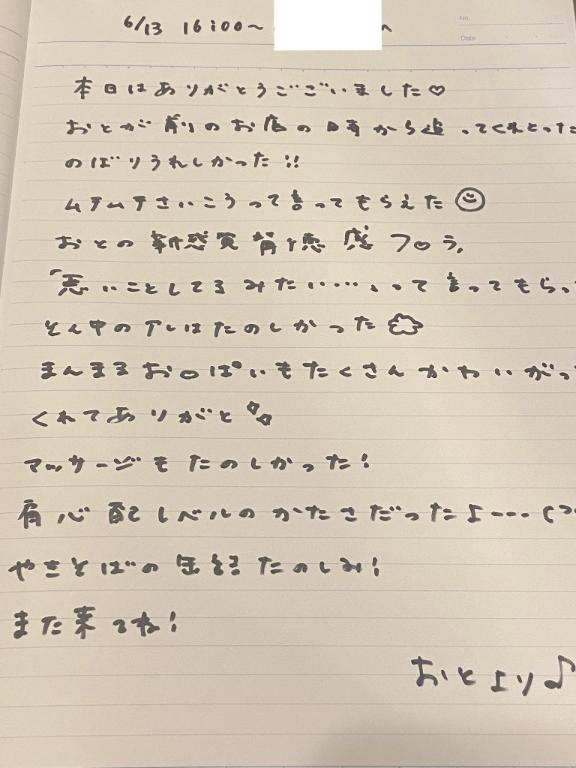 6/13 16:00〜 へ
No.
Date
本日はありがとうございました♡
おとが前のお店の時から追ってくれとった
のばりうれしかった!!
ムチムチさいこうって言ってもらえた
おとの新感覚背徳感フロう。
「悪いことしてるみたい……、って言ってもらっ
そん中のアレはたのしかった
まんまるお○ぱいもたくさんかわいがっ
くれてありがと
マッサージもたのしかった!
肩心配レベルのかたさだったよ---(つ
やきそばの缶詰たのしみ!
また来てね!
おとより♪